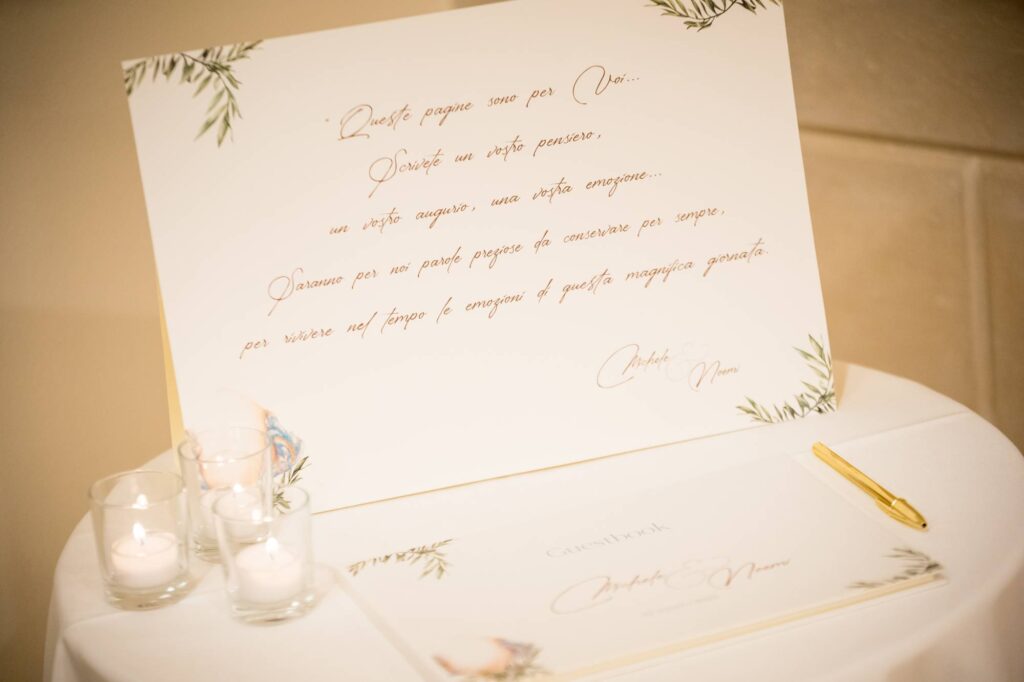 "Queste pagine sono per Voi...
Scrivete un vostro pensiero,
un vostro augurio, una vostra emozione...
Saranno per noi parole preziose da conservare per sempre,
per rivivere nel tempo le emozioni di questa magnifica giornata.
Michele & Noemi
Guestbook
Michele & Noemi